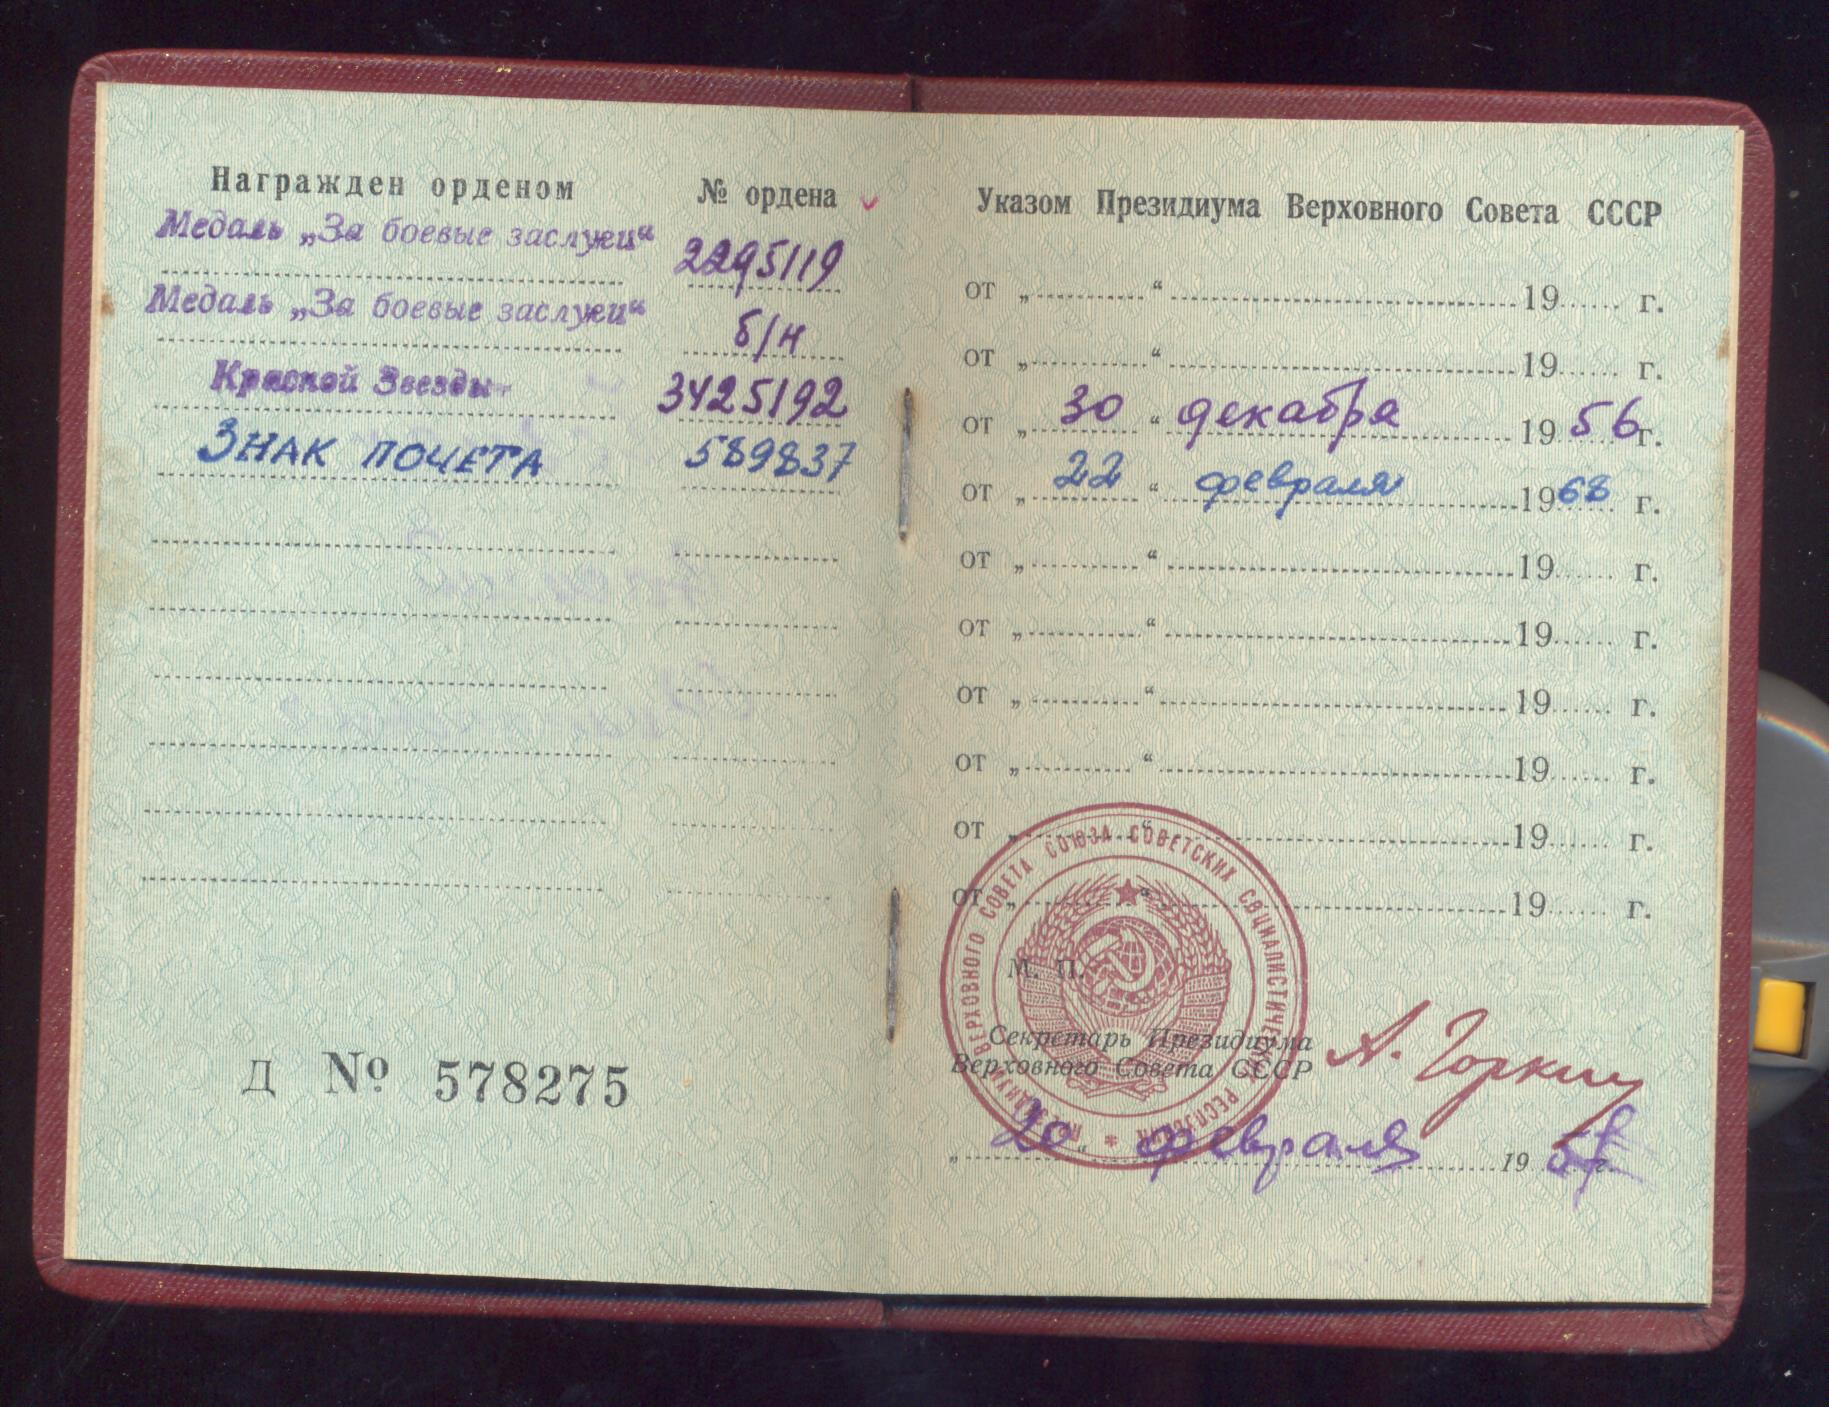 Награжден орденом № ордена
Медаль „За боевые заслуги“ 2295119
Медаль „За боевые заслуги“ б/н
Красной Звезды 3425192
Знак почета 589837
Д № 578275
Указом Президиума Верховного Совета СССР
от „ “ 19 г.
от „ “ 19 г.
от „ 30 “ декабря 1956 г.
от „ 22 “ февраля 1968 г.
от „ “ 19 г.
от „ “ 19 г.
от „ “ 19 г.
от „ “ 19 г.
от „ “ 19 г.
от „ “ 19 г.
ПРЕЗИДИУМ ВЕРХОВНОГО СОВЕТА СОЮЗА СОВЕТСКИХ СОЦИАЛИСТИЧЕСКИХ РЕСПУБЛИК
М. П.
Секретарь Президиума
Верховного Совета СССР А. Горкин
„ 20 “ февраля 19